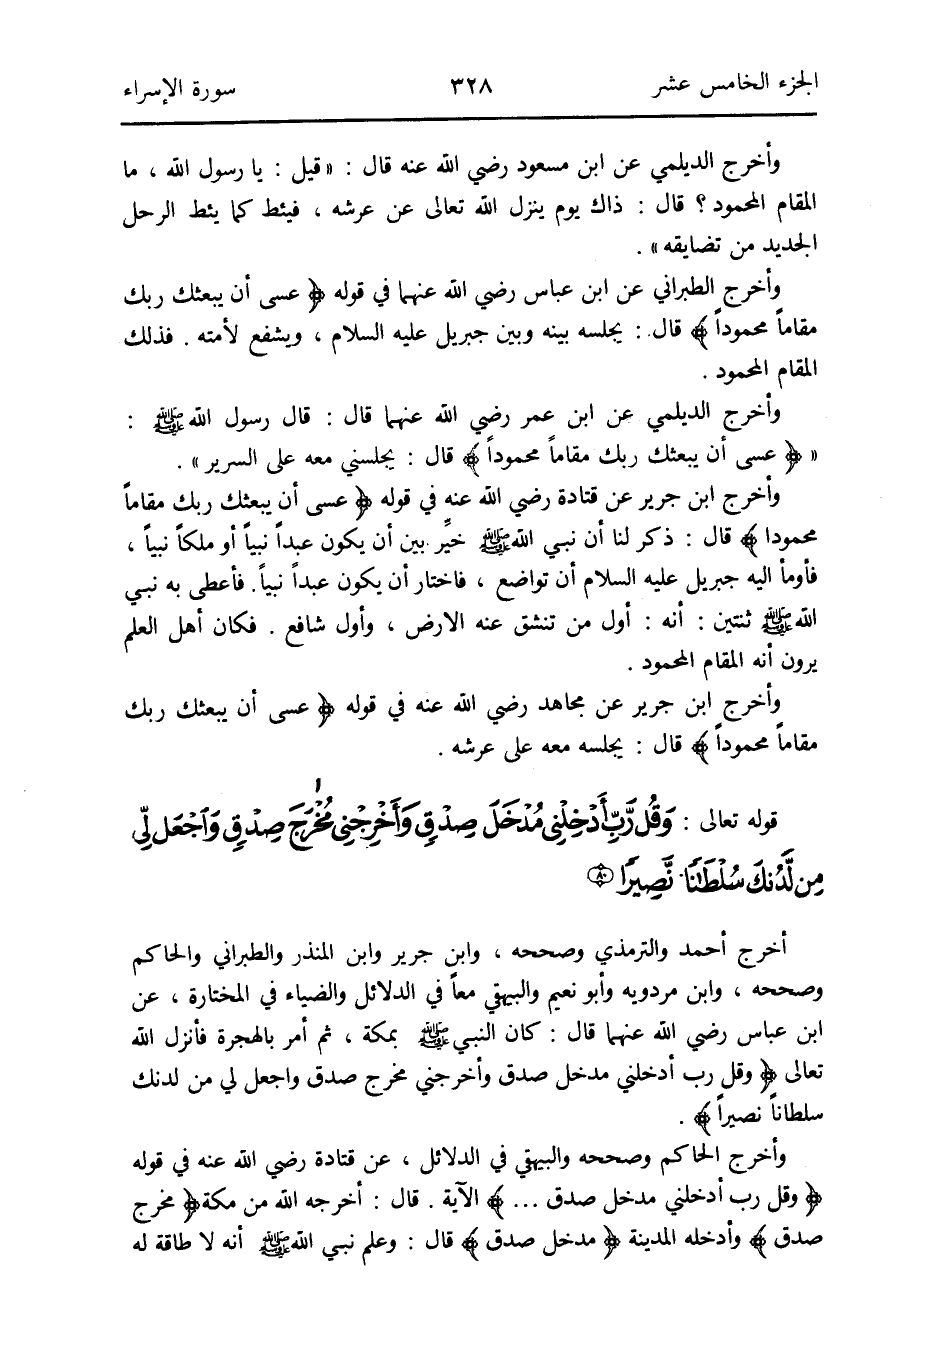 الجزء الخامس عشر ٣٢٨ سورة الإسراء
وأخرج الديلمي عن ابن مسعود رضي الله عنه قال : « قيل : يا رسول الله ، ما
المقام المحمود ؟ قال : ذاك يوم ينزل الله تعالى عن عرشه ، فيئط كما يئط الرحل
الجديد من تضايقه » .
وأخرج الطبراني عن ابن عباس رضي الله عنهما في قوله ﴿ عسى أن يبعثك ربك
مقاماً محموداً ﴾ قال : يجلسه بينه وبين جبريل عليه السلام ، ويشفع لأمته . فذلك
المقام المحمود .
وأخرج الديلمي عن ابن عمر رضي الله عنهما قال : قال رسول الله ﷺ :
« ﴿ عسى أن يبعثك ربك مقاماً محموداً ﴾ قال : يجلسني معه على السرير » .
وأخرج ابن جرير عن قتادة رضي الله عنه في قوله ﴿ عسى أن يبعثك ربك مقاماً
محمودا ﴾ قال : ذكر لنا أن نبي الله ﷺ خيِّر بين أن يكون عبداً نبياً أو ملكاً نبياً ،
فأومأ اليه جبريل عليه السلام أن تواضع ، فاختار أن يكون عبداً نبياً . فأعطى به نبي
الله ﷺ ثنتين : أنه : أول من تنشق عنه الارض ، وأول شافع . فكان أهل العلم
يرون أنه المقام المحمود .
وأخرج ابن جرير عن مجاهد رضي الله عنه في قوله ﴿ عسى أن يبعثك ربك
مقاماً محموداً ﴾ قال : يجلسه معه على عرشه .
قوله تعالى : وَقُل رَّبِّ أَدْخِلْنِي مُدْخَلَ صِدْقٍ وَأَخْرِجْنِي مُخْرَجَ صِدْقٍ وَٱجْعَل لِّي
مِن لَّدُنكَ سُلْطَٰنًا نَّصِيرًا ۝٨٠
أخرج أحمد والترمذي وصححه ، وابن جرير وابن المنذر والطبراني والحاكم
وصححه ، وابن مردويه وأبو نعيم والبيهقي معاً في الدلائل والضياء في المختارة ، عن
ابن عباس رضي الله عنهما قال : كان النبي ﷺ بمكة ، ثم أمر بالهجرة فأنزل الله
تعالى ﴿ وقل رب أدخلني مدخل صدق وأخرجني مخرج صدق واجعل لي من لدنك
سلطاناً نصيراً ﴾ .
وأخرج الحاكم وصححه والبيهقي في الدلائل ، عن قتادة رضي الله عنه في قوله
﴿ وقل رب أدخلني مدخل صدق ... ﴾ الآية . قال : أخرجه الله من مكة ﴿ مخرج
صدق ﴾ وأدخله المدينة ﴿ مدخل صدق ﴾ قال : وعلم نبي الله ﷺ أنه لا طاقة له